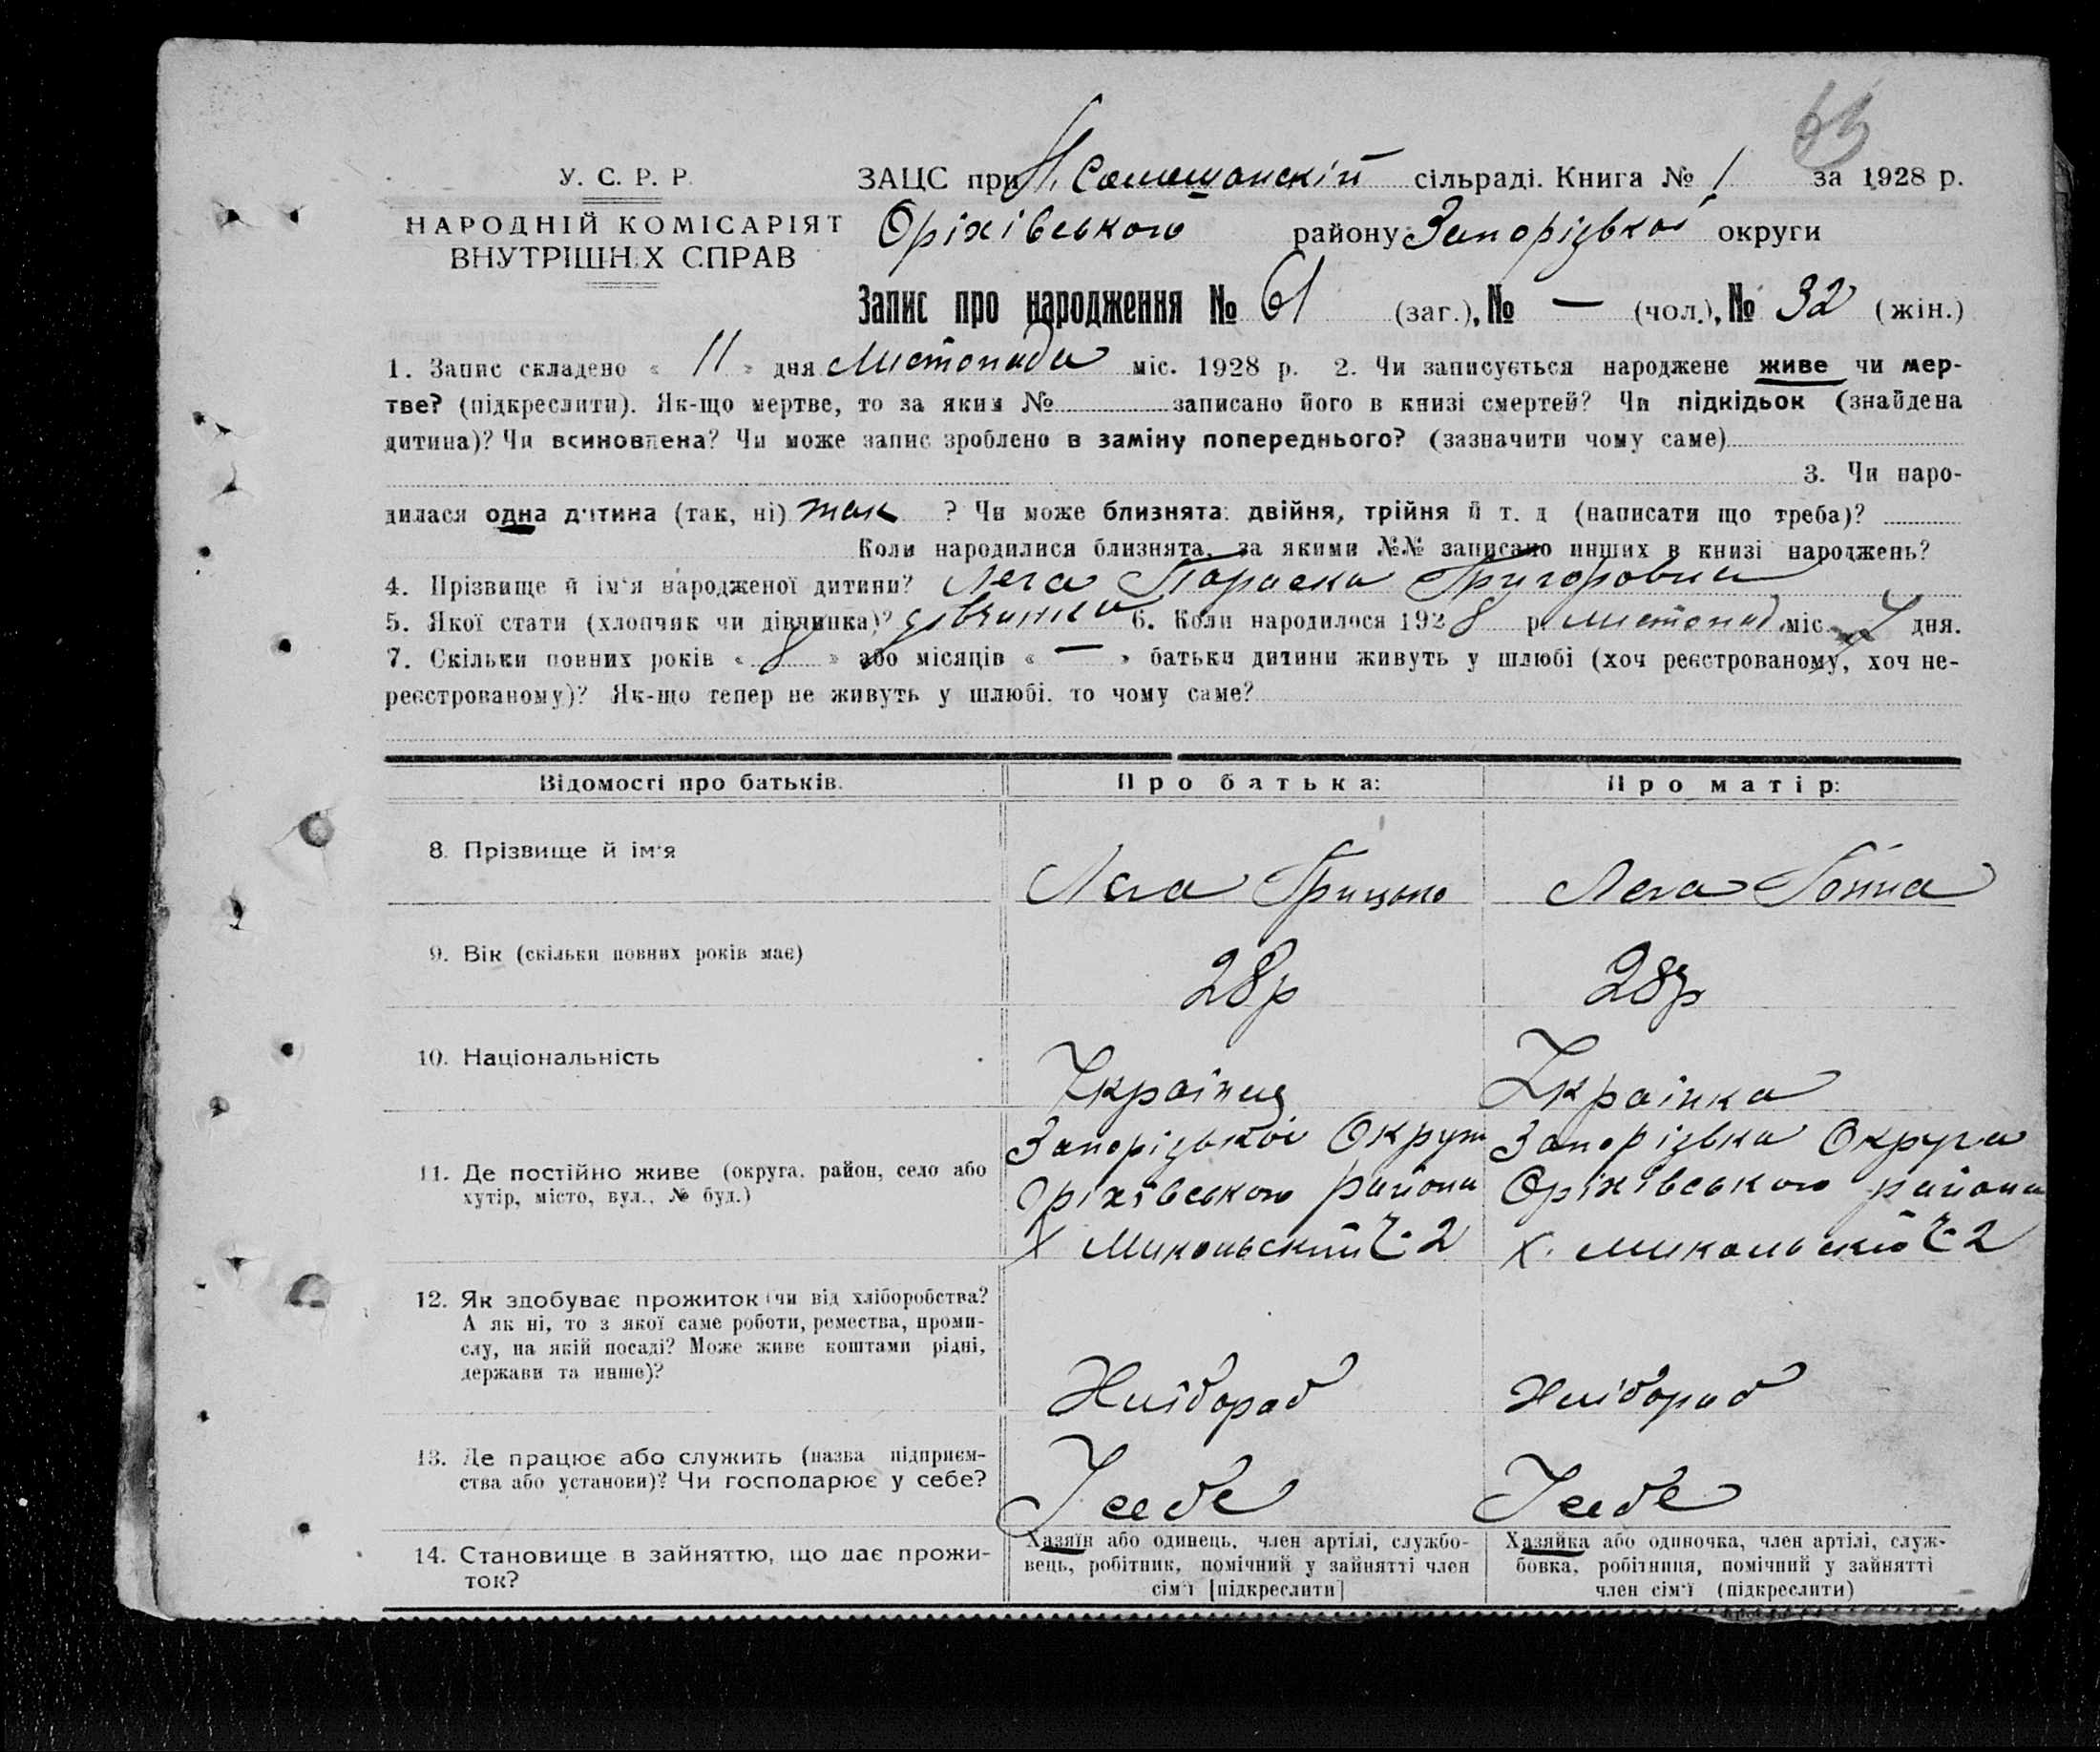 63
У. С. Р. Р.
НАРОДНІЙ КОМІСАРІЯТ
ВНУТРІШНІХ СПРАВ
ЗАЦС при сільраді. Книга № 1 за 1928 р.
Оріхівського району Запорізької округи
Запис про народження № 61 (заг.), № — (чол.), № 32 (жін.)
1. Запис складено « 11 » дня Листопада міс. 1928 р. 2. Чи записується народжене живе чи мер-
тве? (підкреслити). Як-що мертве, то за яким № записано його в книзі смертей? Чи підкідьок (знайдена
дитина)? Чи всиновлена? Чи може запис зроблено в заміну попереднього? (зазначити чому саме)
3. Чи наро-
дилася одна дитина (так, ні) так ? Чи може близнята: двійня, трійня й т. д (написати що треба)?
Коли народилися близнята, за якими №№ записано инших в книзі народжень?
4. Прізвище й ім'я народженої дитини? Лега Параска Григоровна
5. Якої стати (хлопчик чи дівчинка)? дівчинка 6. Коли народилося 1928 р. листопад міс. дня.
7. Скільки повних років « 8 » або місяців « — » батьки дитини живуть у шлюбі (хоч реєстрованому, хоч не-
реєстрованому)? Як-що тепер не живуть у шлюбі, то чому саме?
Відомості про батьків. Про батька: Про матір:
8. Прізвище й ім'я
Лега Грицько Лега Ганна
9. Вік (скільки повних років має)
28р 28р
10. Національність
Українец Українка
11. Де постійно живе (округа, район, село або
хутір, місто, вул., № буд.)
Запорізької Округи Запорізька Округа
Оріхівського района Оріхівського района
Х Микольский Ч-2 Х. Микольский Ч-2
12. Як здобуває прожиток (чи від хліборобства?
А як ні, то з якої саме роботи, ремества, проми-
слу, на якій посаді? Може живе коштами рідні,
держави та инше)?
Хлібороб Хлібороб
13. Де працює або служить (назва підприєм-
ства або установи)? Чи господарює у себе?
У себе У себе
14. Становище в зайняттю, що дає прожи-
ток?
Хазяїн або одинець, член артілі, службо-
вець, робітник, помічний у зайнятті член
сім'ї [підкреслити]
Хазяйка або одиночка, член артілі, служ-
бовка, робітниця, помічний у зайнятті
член сім'ї (підкреслити)